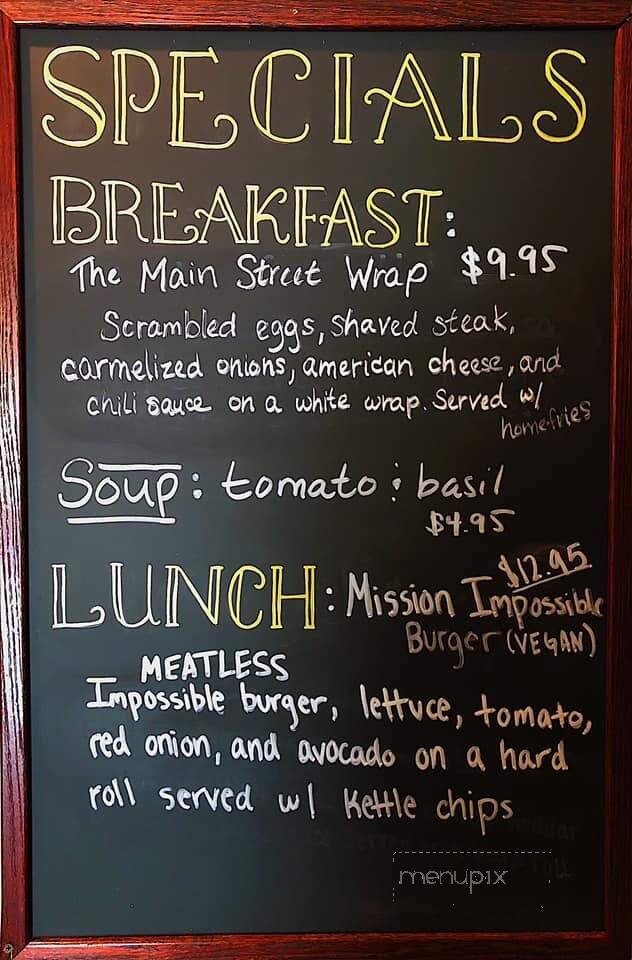 SPECIALS
BREAKFAST:
The Main Street Wrap $9.95
Scrambled eggs, shaved steak,
carmelized onions, american cheese, and
chili sauce on a white wrap. Served w/
homefries
Soup: tomato & basil
$4.95
$12.95
LUNCH: Mission Impossible
Burger (VEGAN)
MEATLESS
Impossible burger, lettuce, tomato,
red onion, and avocado on a hard
roll served w/ kettle chips
menupix